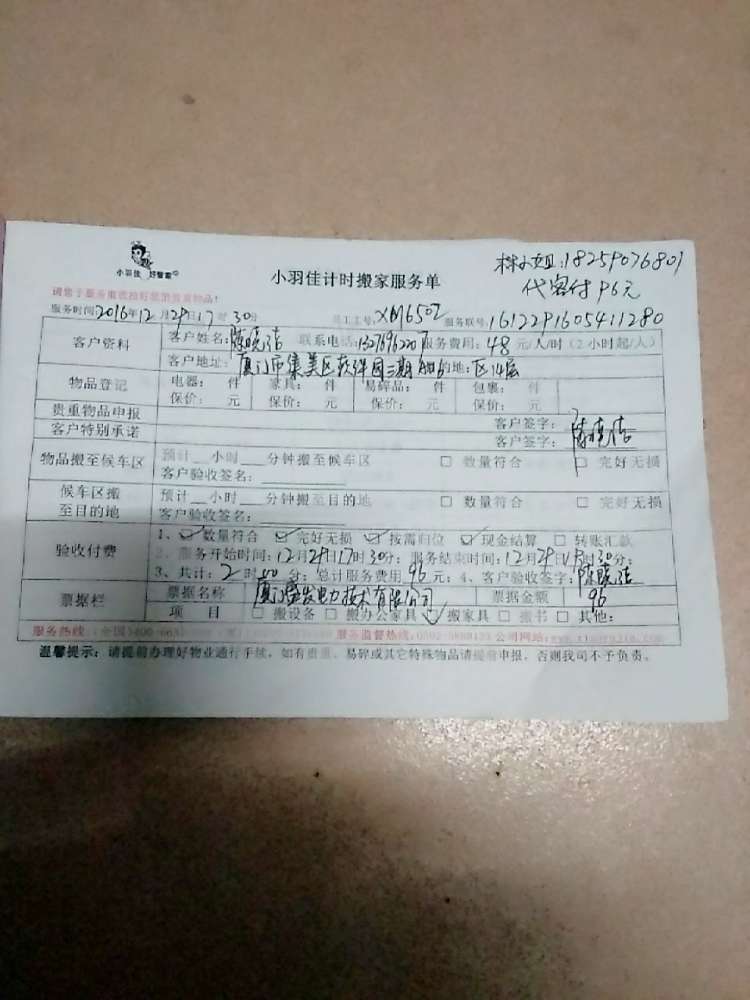 小羽佳 好管家
小羽佳计时搬家服务单
林小姐:18259076801
代客付96元
请您于服务前收拾好您的贵重物品!
服务时间2016年12月29日17时30分 员工工号:XM6502 服务联号:1612291605411280
客户资料 客户姓名:陈晓洁 联系电话: 服务费用:48元/人/时(2小时起/人)
客户地址:厦门市集美区软件园三期 目的地: 区14层
物品登记 电器: 件 家具: 件 易碎品: 件 包裹: 件
保价: 元 保价: 元 保价: 元 保价: 元
贵重物品申报 客户签字:
客户特别承诺 客户签字:陈晓洁
物品搬至候车区 预计__小时___分钟搬至候车区 □ 数量符合 □ 完好无损
客户验收签名:
候车区搬至目的地 预计__小时___分钟搬至目的地 □ 数量符合 □ 完好无损
客户验收签名:
验收付费 1、☑数量符合 ☑完好无损 ☑按需归位 ☑现金结算 □ 转账汇款
2、服务开始时间:12月29日17时30分; 服务结束时间:12月29日 时30分;
3、共计:2时00分; 总计服务费用96元; 4、客户验收签字:陈晓洁
票据栏 票据名称 厦门 电力技术有限公司 票据金额 96
项 目 □ 搬设备 □ 搬办公家具 ☑搬家具 □ 搬书 □ 其他:
服务热线:(全国)400-663 服务监督热线: 公司网站:
温馨提示: 请提前办理好物业通行手续, 如有贵重、易碎或其它特殊物品请提前申报, 否则我司不予负责。